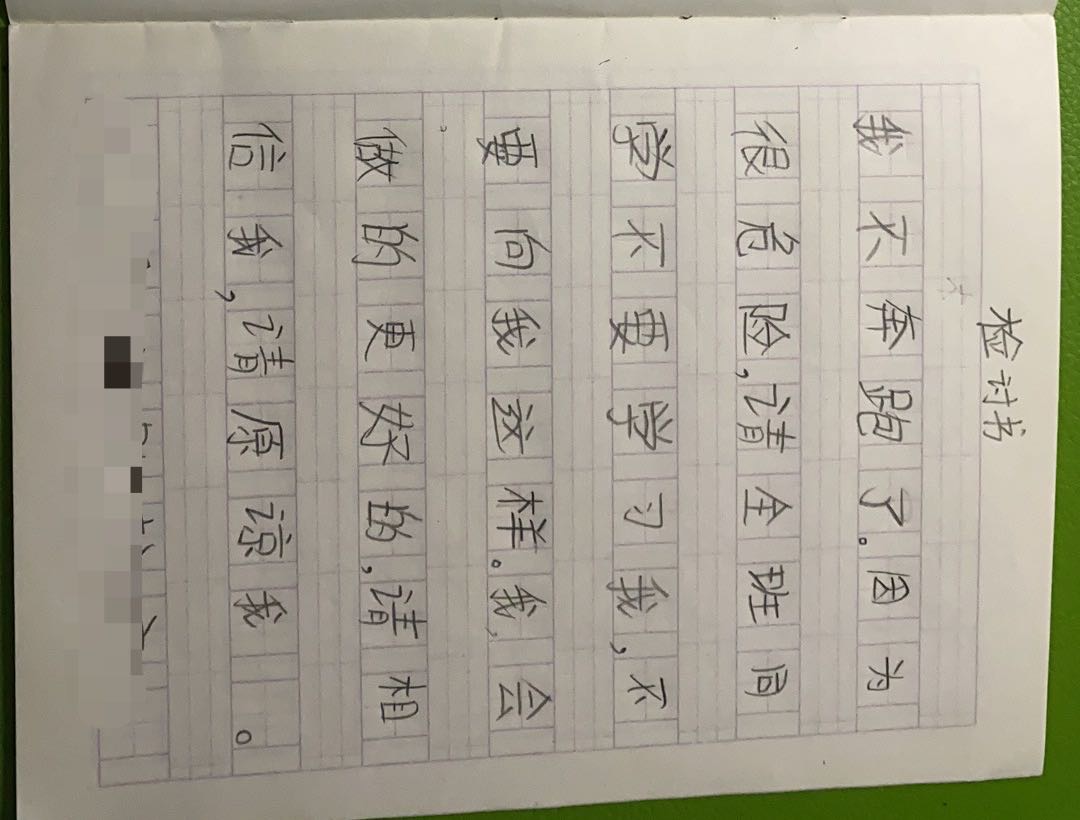 检讨书
我不奔跑了。因为
很危险,请全班同
学不要学习我,不
要向我这样。我,会
做的更好的,请相
信我,请原谅我。